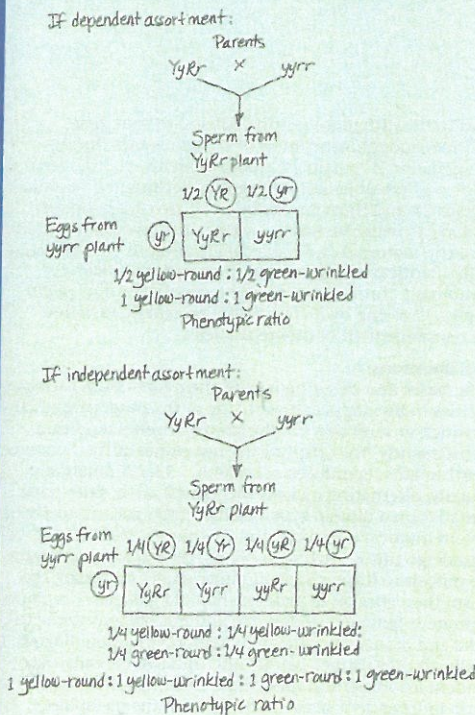 If dependent assortment:
Parents
YyRr × yyrr
Sperm from
YyRr plant
1/2 YR 1/2 yr
Eggs from
yyrr plant
yr YyRr yyrr
1/2 yellow-round : 1/2 green-wrinkled
1 yellow-round : 1 green-wrinkled
Phenotypic ratio
If independent assortment:
Parents
YyRr × yyrr
Sperm from
YyRr plant
Eggs from
yyrr plant
1/4 YR 1/4 Yr 1/4 yR 1/4 yr
yr YyRr Yyrr yyRr yyrr
1/4 yellow-round : 1/4 yellow-wrinkled:
1/4 green-round : 1/4 green-wrinkled
1 yellow-round : 1 yellow-wrinkled : 1 green-round : 1 green-wrinkled
Phenotypic ratio